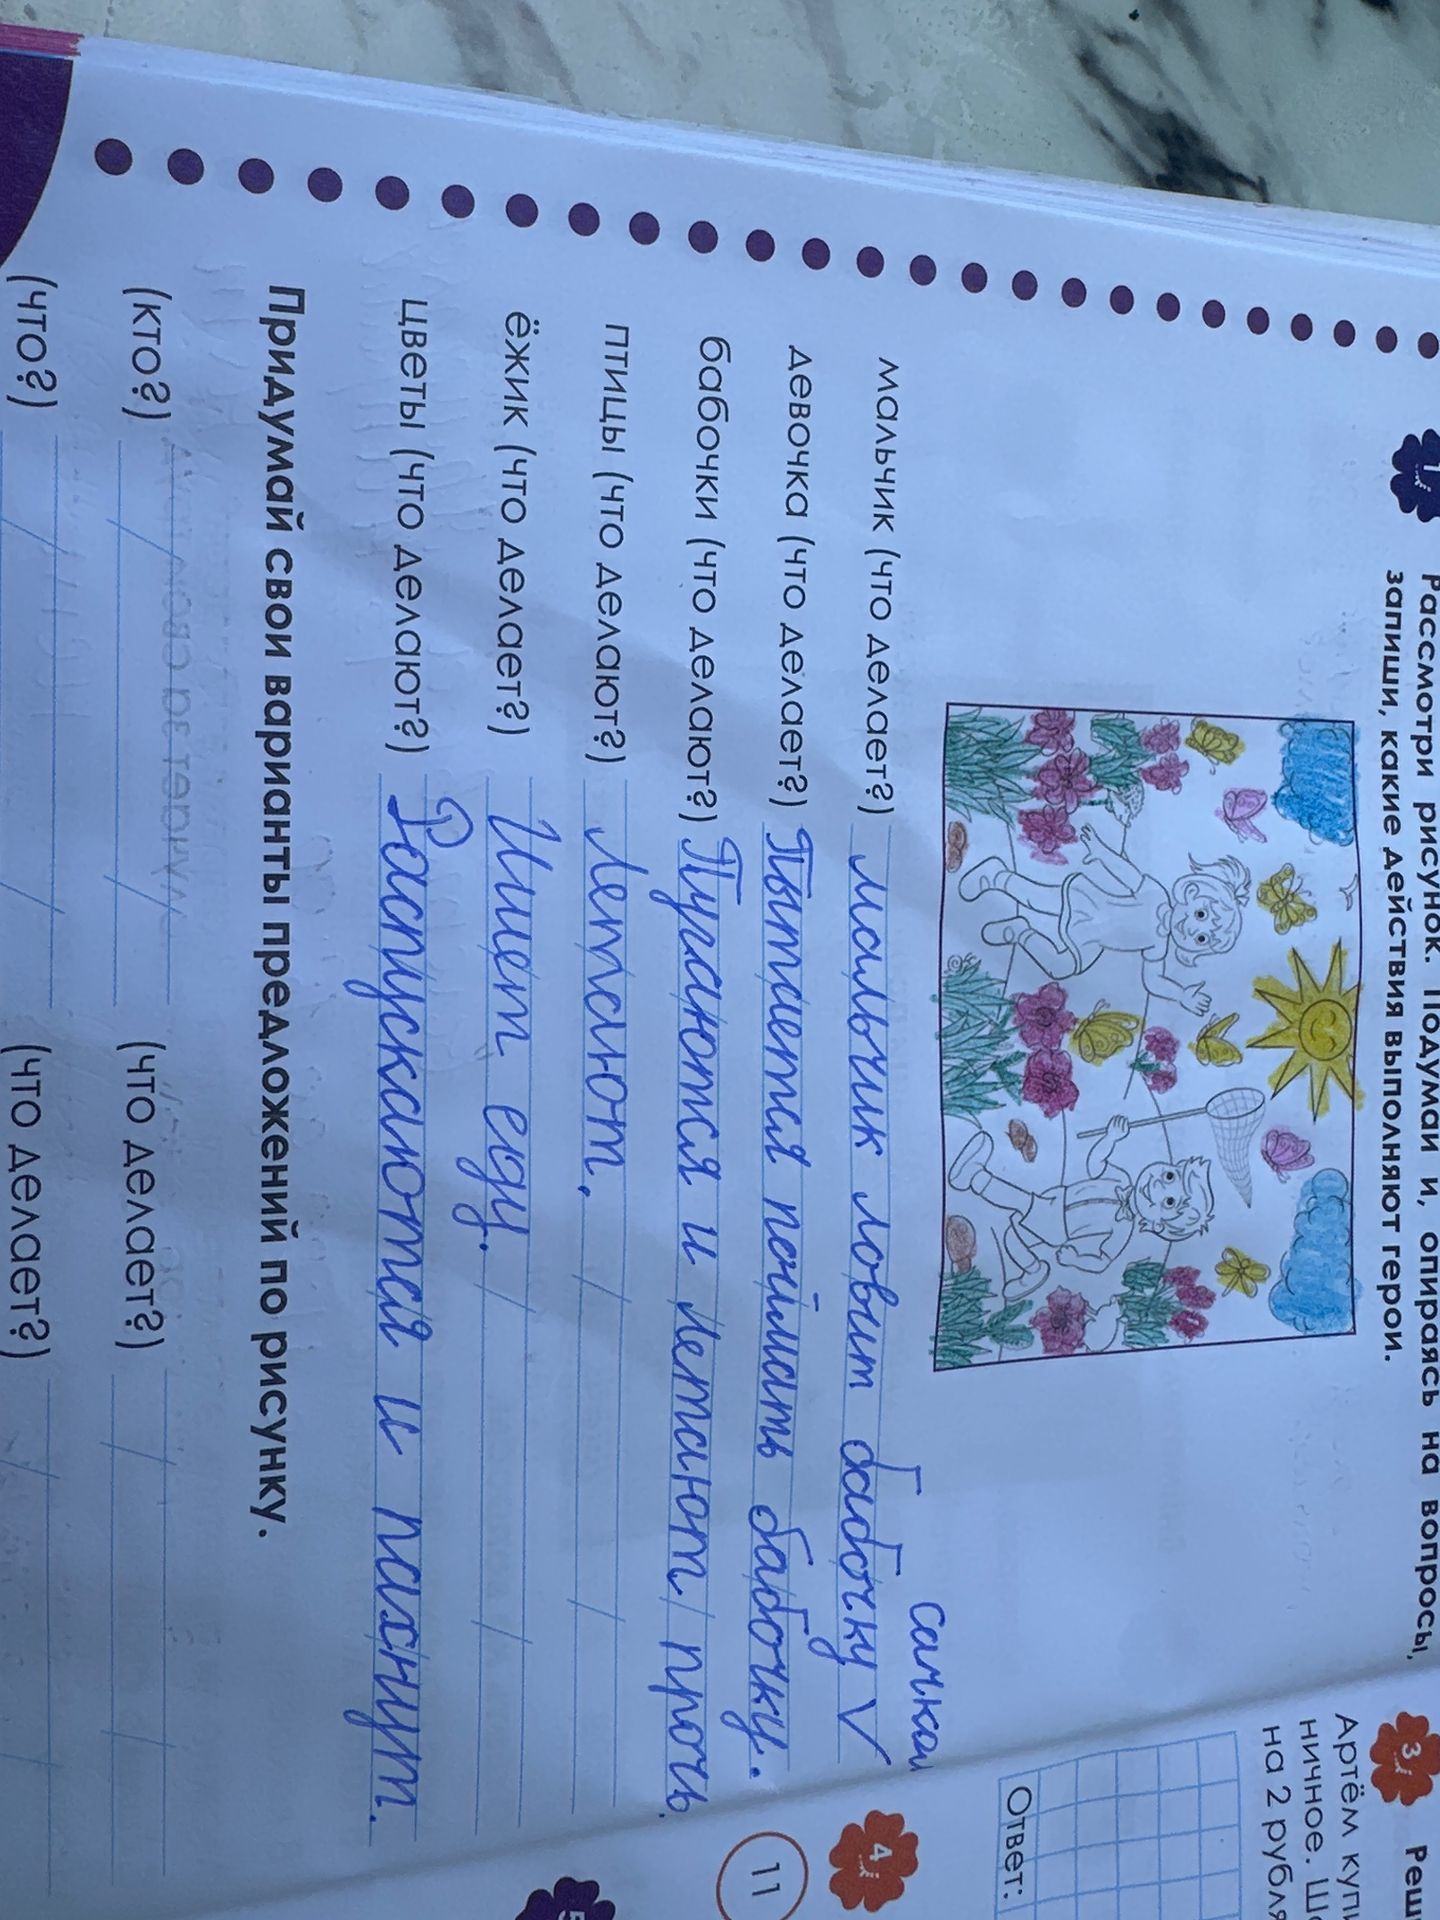 1
Рассмотри рисунок. Подумай и, опираясь на вопросы,
запиши, какие действия выполняют герои.
сачком
мальчик (что делает?) мальчик ловит бабочку V
девочка (что делает?) Пытается поймать бабочку.
бабочки (что делают?) Пугаются и летают/прочь.
птицы (что делают?) Летают.
ёжик (что делает?) Ищет еду.
цветы (что делают?) Распускаются и пахнут.
Придумай свои варианты предложений по рисунку.
(кто?) (что делает?)
(что?) (что делает?)
11
3
Артём
на 2
Ответ:
4